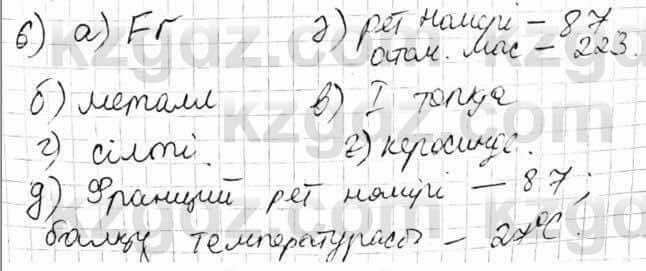 6) а) Fr ә) рет номірі – 87
атом. мас – 223.
б) металл в) I топқа
г) сілті. ғ) керосинде.
д) Франций рет номірі – 87;
балқу температурасы – 27°С.
kzgdz.com